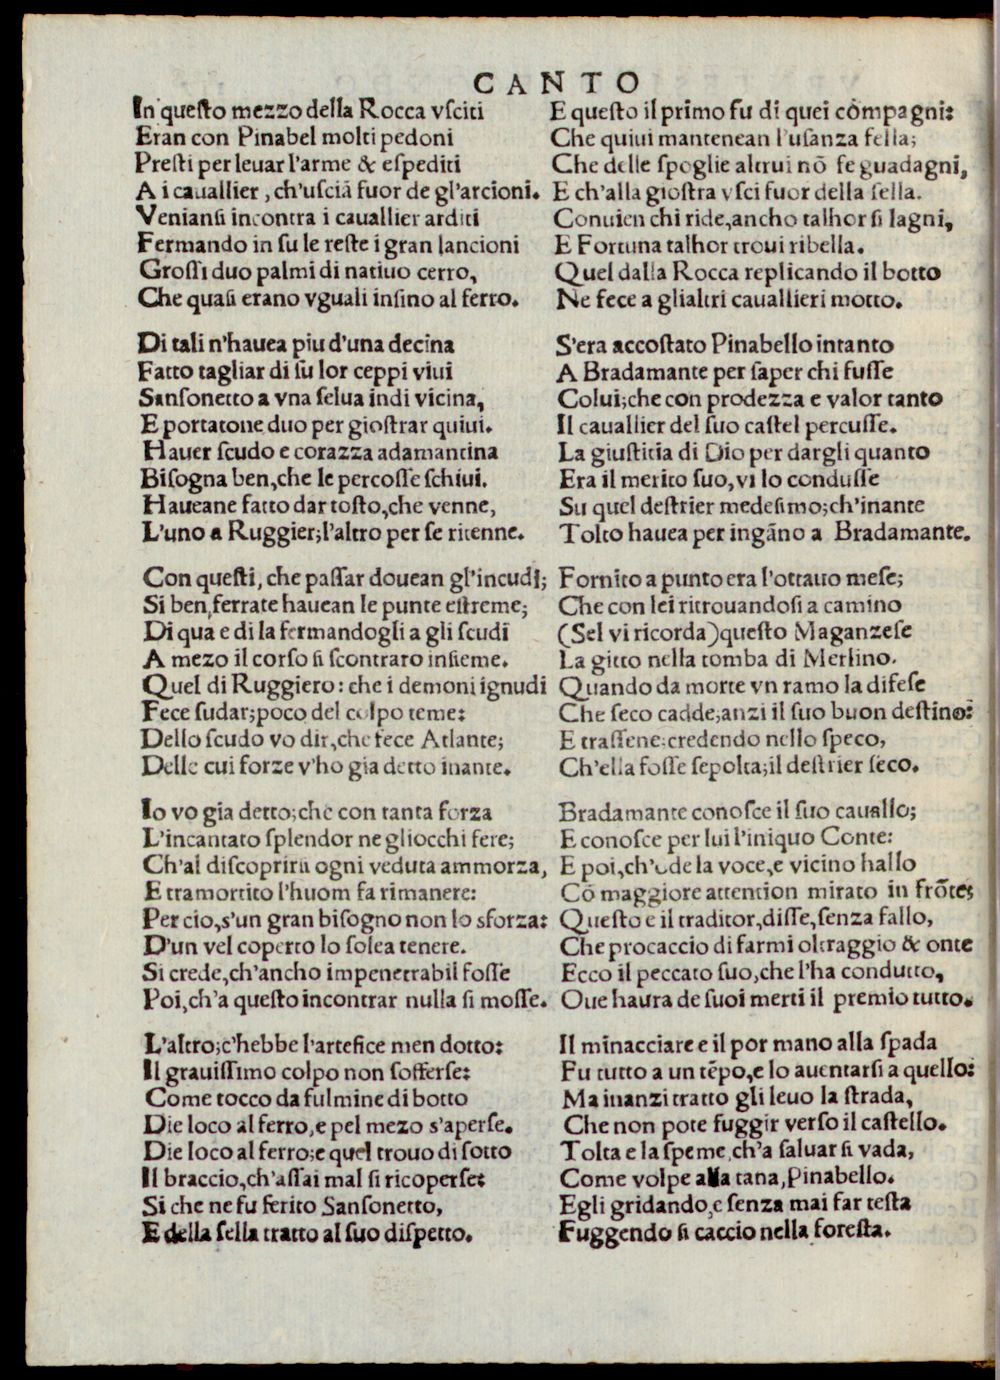 CANTO
In queſto mezzo della Rocca vſciti
Eran con Pinabel molti pedoni
Preſti per leuar l'arme & eſpediti
A i cauallier, ch'uſciã fuor de gl'arcioni.
Venianſi incontra i cauallier arditi
Fermando in ſu le reſte i gran lancioni
Groſſi duo palmi di natiuo cerro,
Che quaſi erano vguali inſino al ferro.

Di tali n'hauea piu d'una decina
Fatto tagliar di ſu lor ceppi viui
Sanſonetto a vna ſelua indi vicina,
E portatone duo per gioſtrar quiui.
Hauer ſcudo e corazza adamantina
Biſogna ben, che le percoſſe ſchiui.
Haueane fatto dar toſto, che venne,
L'uno a Ruggier; l'altro per ſe ritenne.

Con queſti, che paſſar douean gl'incudi;
Si ben, ferrate hauean le punte eſtreme;
Di qua e di la fermandogli a gli ſcudi
A mezo il corſo ſi ſcontraro inſieme.
Quel di Ruggiero: che i demoni ignudi
Fece ſudar; poco del colpo teme:
Dello ſcudo vo dir, che fece Atlante;
Delle cui forze v'ho gia detto inante.

Io vo gia detto; che con tanta forza
L'incantato ſplendor ne gliocchi fere;
Ch'al diſcoprirſi ogni veduta ammorza,
E tramortito l'huom fa rimanere:
Per cio, s'un gran biſogno non lo sforza:
D'un vel coperto lo ſolea tenere.
Si crede, ch'ancho impenetrabil foſſe
Poi, ch'a queſto incontrar nulla ſi moſſe.

L'altro; c'hebbe l'artefice men dotto:
Il grauiſſimo colpo non ſofferſe:
Come tocco da fulmine di botto
Die loco al ferro, e pel mezo s'aperſe.
Die loco al ferro; e quel trouo di ſotto
Il braccio, ch'aſſai mal ſi ricoperſe:
Si che ne fu ferito Sanſonetto,
E della ſella tratto al ſuo diſpetto.

E queſto il primo fu di quei cõmpagni:
Che quiui mantenean l'uſanza fella;
Che delle ſpoglie altrui nõ fe guadagni,
E ch'alla gioſtra vſci fuor della ſella.
Conuien chi ride, ancho talhor ſi lagni,
E Fortuna talhor troui ribella.
Quel dalla Rocca replicando il botto
Ne fece a glialtri cauallieri motto.

S'era accoſtato Pinabello intanto
A Bradamante per ſaper chi fuſſe
Colui; che con prodezza e valor tanto
Il cauallier del ſuo caſtel percuſſe.
La giuſtitia di Dio per dargli quanto
Era il merito ſuo, vi lo conduſſe
Su quel deſtrier medeſimo; ch'inante
Tolto hauea per ingãno a Bradamante.

Fornito a punto era l'ottauo meſe;
Che con lei ritrouandoſi a camino
(Sel vi ricorda) queſto Maganzeſe
La gitto nella tomba di Merlino.
Quando da morte vn ramo la difeſe
Che ſeco cadde; anzi il ſuo buon deſtino:
E traſſene: credendo nello ſpeco,
Ch'ella foſſe ſepolta; il deſtrier ſeco.

Bradamante conoſce il ſuo cauallo;
E conoſce per lui l'iniquo Conte:
E poi, ch'ode la voce, e vicino hallo
Cõ maggiore attention mirato in frõte;
Queſto e il traditor, diſſe, ſenza fallo,
Che procaccio di farmi oltraggio & onte
Ecco il peccato ſuo, che l'ha condutto,
Oue haura de ſuoi merti il premio tutto.

Il minacciare e il por mano alla ſpada
Fu tutto a un tẽpo, e lo auentarſi a quello:
Ma inanzi tratto gli leuo la ſtrada,
Che non pote fuggir verſo il caſtello.
Tolta e la ſpeme, ch'a ſaluar ſi vada,
Come volpe alla tana, Pinabello.
Egli gridando, e ſenza mai far teſta
Fuggendo ſi caccio nella foreſta.